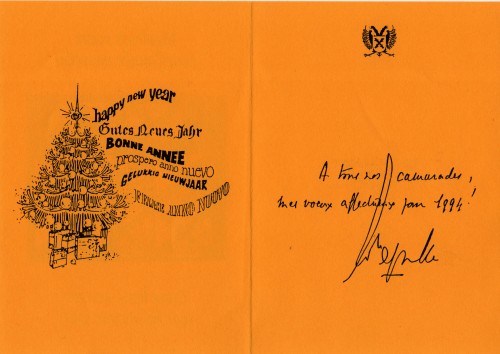 happy new year
Gutes Neues Jahr
BONNE ANNEE
prospero anno nuevo
GELUKKIG NIEUWJAAR
ANNO NUOVO
X
A tous nos camarades,
mes voeux affectueux pour 1994!